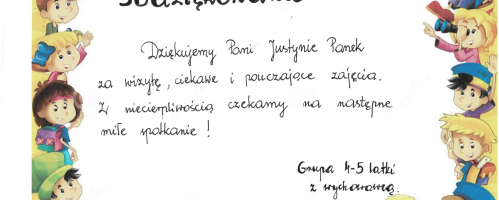 Podziękowanie
Dziękujemy Pani Justynie Panek
za wizytę, ciekawe i pouczające zajęcia.
Z niecierpliwością czekamy na następne
miłe spotkanie!
Grupa 4-5 latki
z wychowawcą.